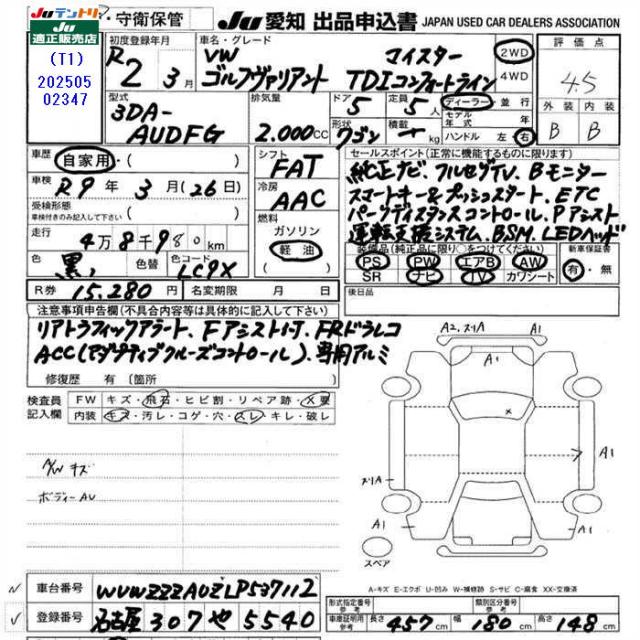 JUテントリ
JU 適正販売店
(T1)
202505
02347
・守衛保管
JU 愛知 出品申込書 JAPAN USED CAR DEALERS ASSOCIATION
初度登録年月
R2 3月
車名・グレード
VW マイスター
ゴルフヴァリアント TDIコンフォートライン
2WD
4WD
評価点
4.5
外装 内装
B B
型式
3DA-
AUDFG
排気量
2.000cc
ドア 5
定員 5人
形状 ワゴン
積載 - kg
ディーラー・並行
モデル年式 年
ハンドル 左・右
車歴 自家用・( )
車検 R9年3月(26日)
受検形態
車検付きのみ記入して下さい ( )
走行 4万8千980km
色 黒
色替
色コード LC9X
シフト FAT
冷房 AAC
燃料
ガソリン
軽油
セールスポイント(正常に機能するものに限ります)
純正ナビ.フルセグTV.Bモニター
スマートキー&プッシュスタート.ETC
パークディスタンスコントロール.Pアシスト
運転支援システム.BSM.LEDヘッド
装備品(純正品に限り○をつけてください)
PS PW エアB AW
SR ナビ TV カワシート
新車保証書
有・無
R券 15.280円
名変期限 月 日
後日品
注意事項申告欄(不具合内容等は具体的に記入して下さい)
リアトラフィックアラート.FアシストJ.FRドラレコ
ACC(アダプティブクルーズコントロール).専用アルミ
修復歴 有〔箇所
検査員記入欄
FW キズ・飛石・ヒビ割・リペア跡・X要
内装 キズ・汚レ・コゲ・穴・スレ・キレ・破レ
A/W キズ
ボディーAU
A2.スリA A1
A1
×
A1
スリA
A1 A1
スペア
A-キズ E-エクボ U-凹み W-補修跡 S-サビ C-腐食 XX-交換済
車台番号 WVWZZZAUZLP537112
登録番号 名古屋 307 や 5540
形式指定番号 参考
類別区分番号 参考
車庫証明用参考
長さ 457cm
幅 180cm
高さ 148cm